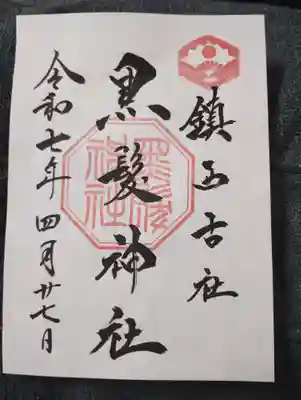 鎮西古社
黒髪神社
令和七年四月廿七日
黒髪
神社